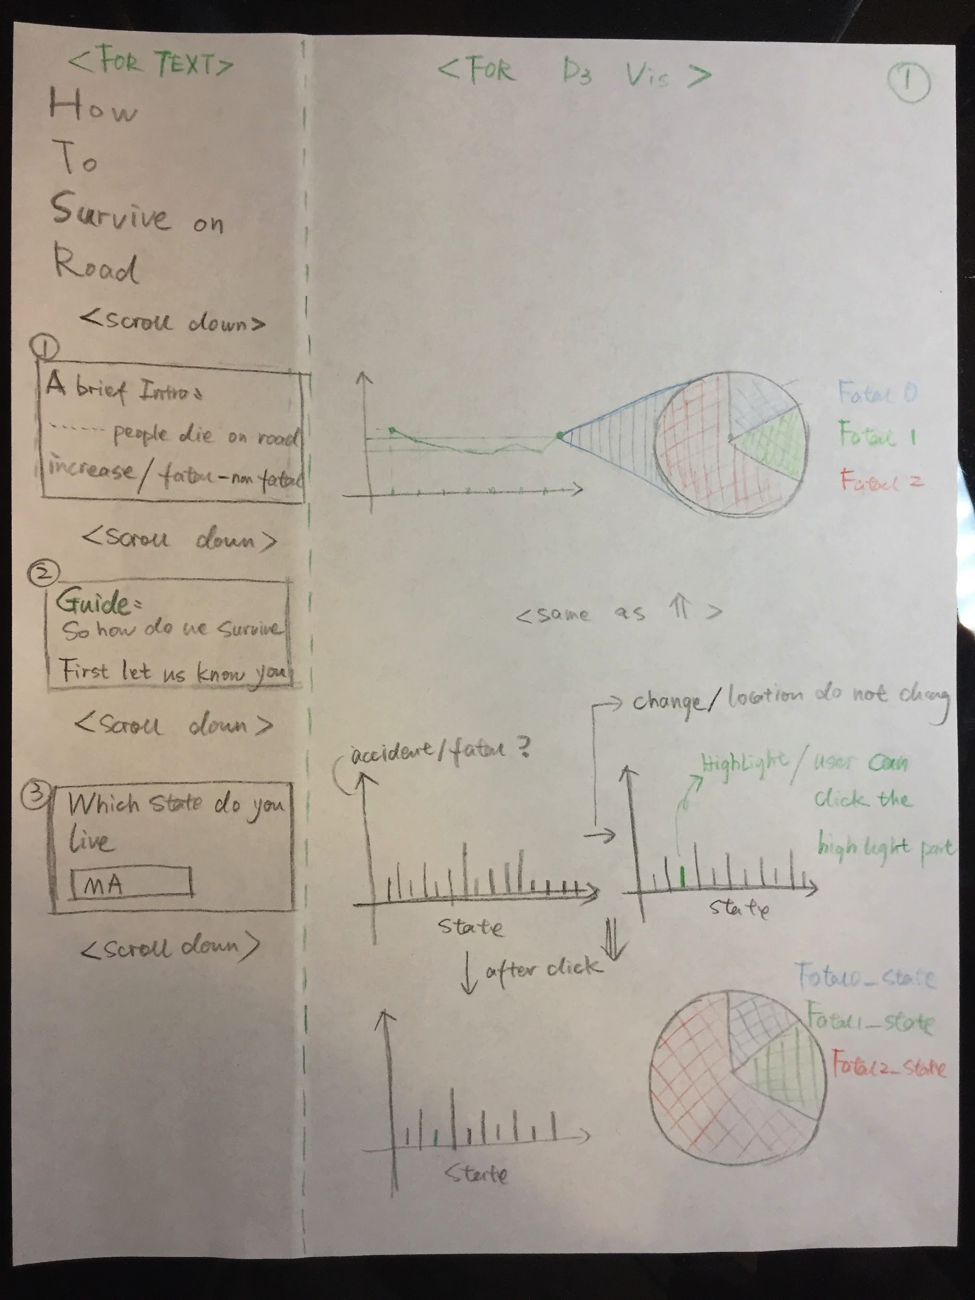 <FOR TEXT>
How
To
Survive on
Road
<scroll down>
①
A brief Intro:
------ people die on road
increase/fatal-non fatal
<scroll down>
②
Guide:
So how do we survive
First let us know you
<scroll down>
③
Which state do you
live
MA
<scroll down>
<FOR D3 Vis>
①
Fatal 0
Fatal 1
Fatal 2
<same as ⇑>
change/location do not chang
accident/fatal?
Highlight/user can
click the
highlight part
State
State
after click
Fatal0_state
Fatal1_state
Fatal2_state
State